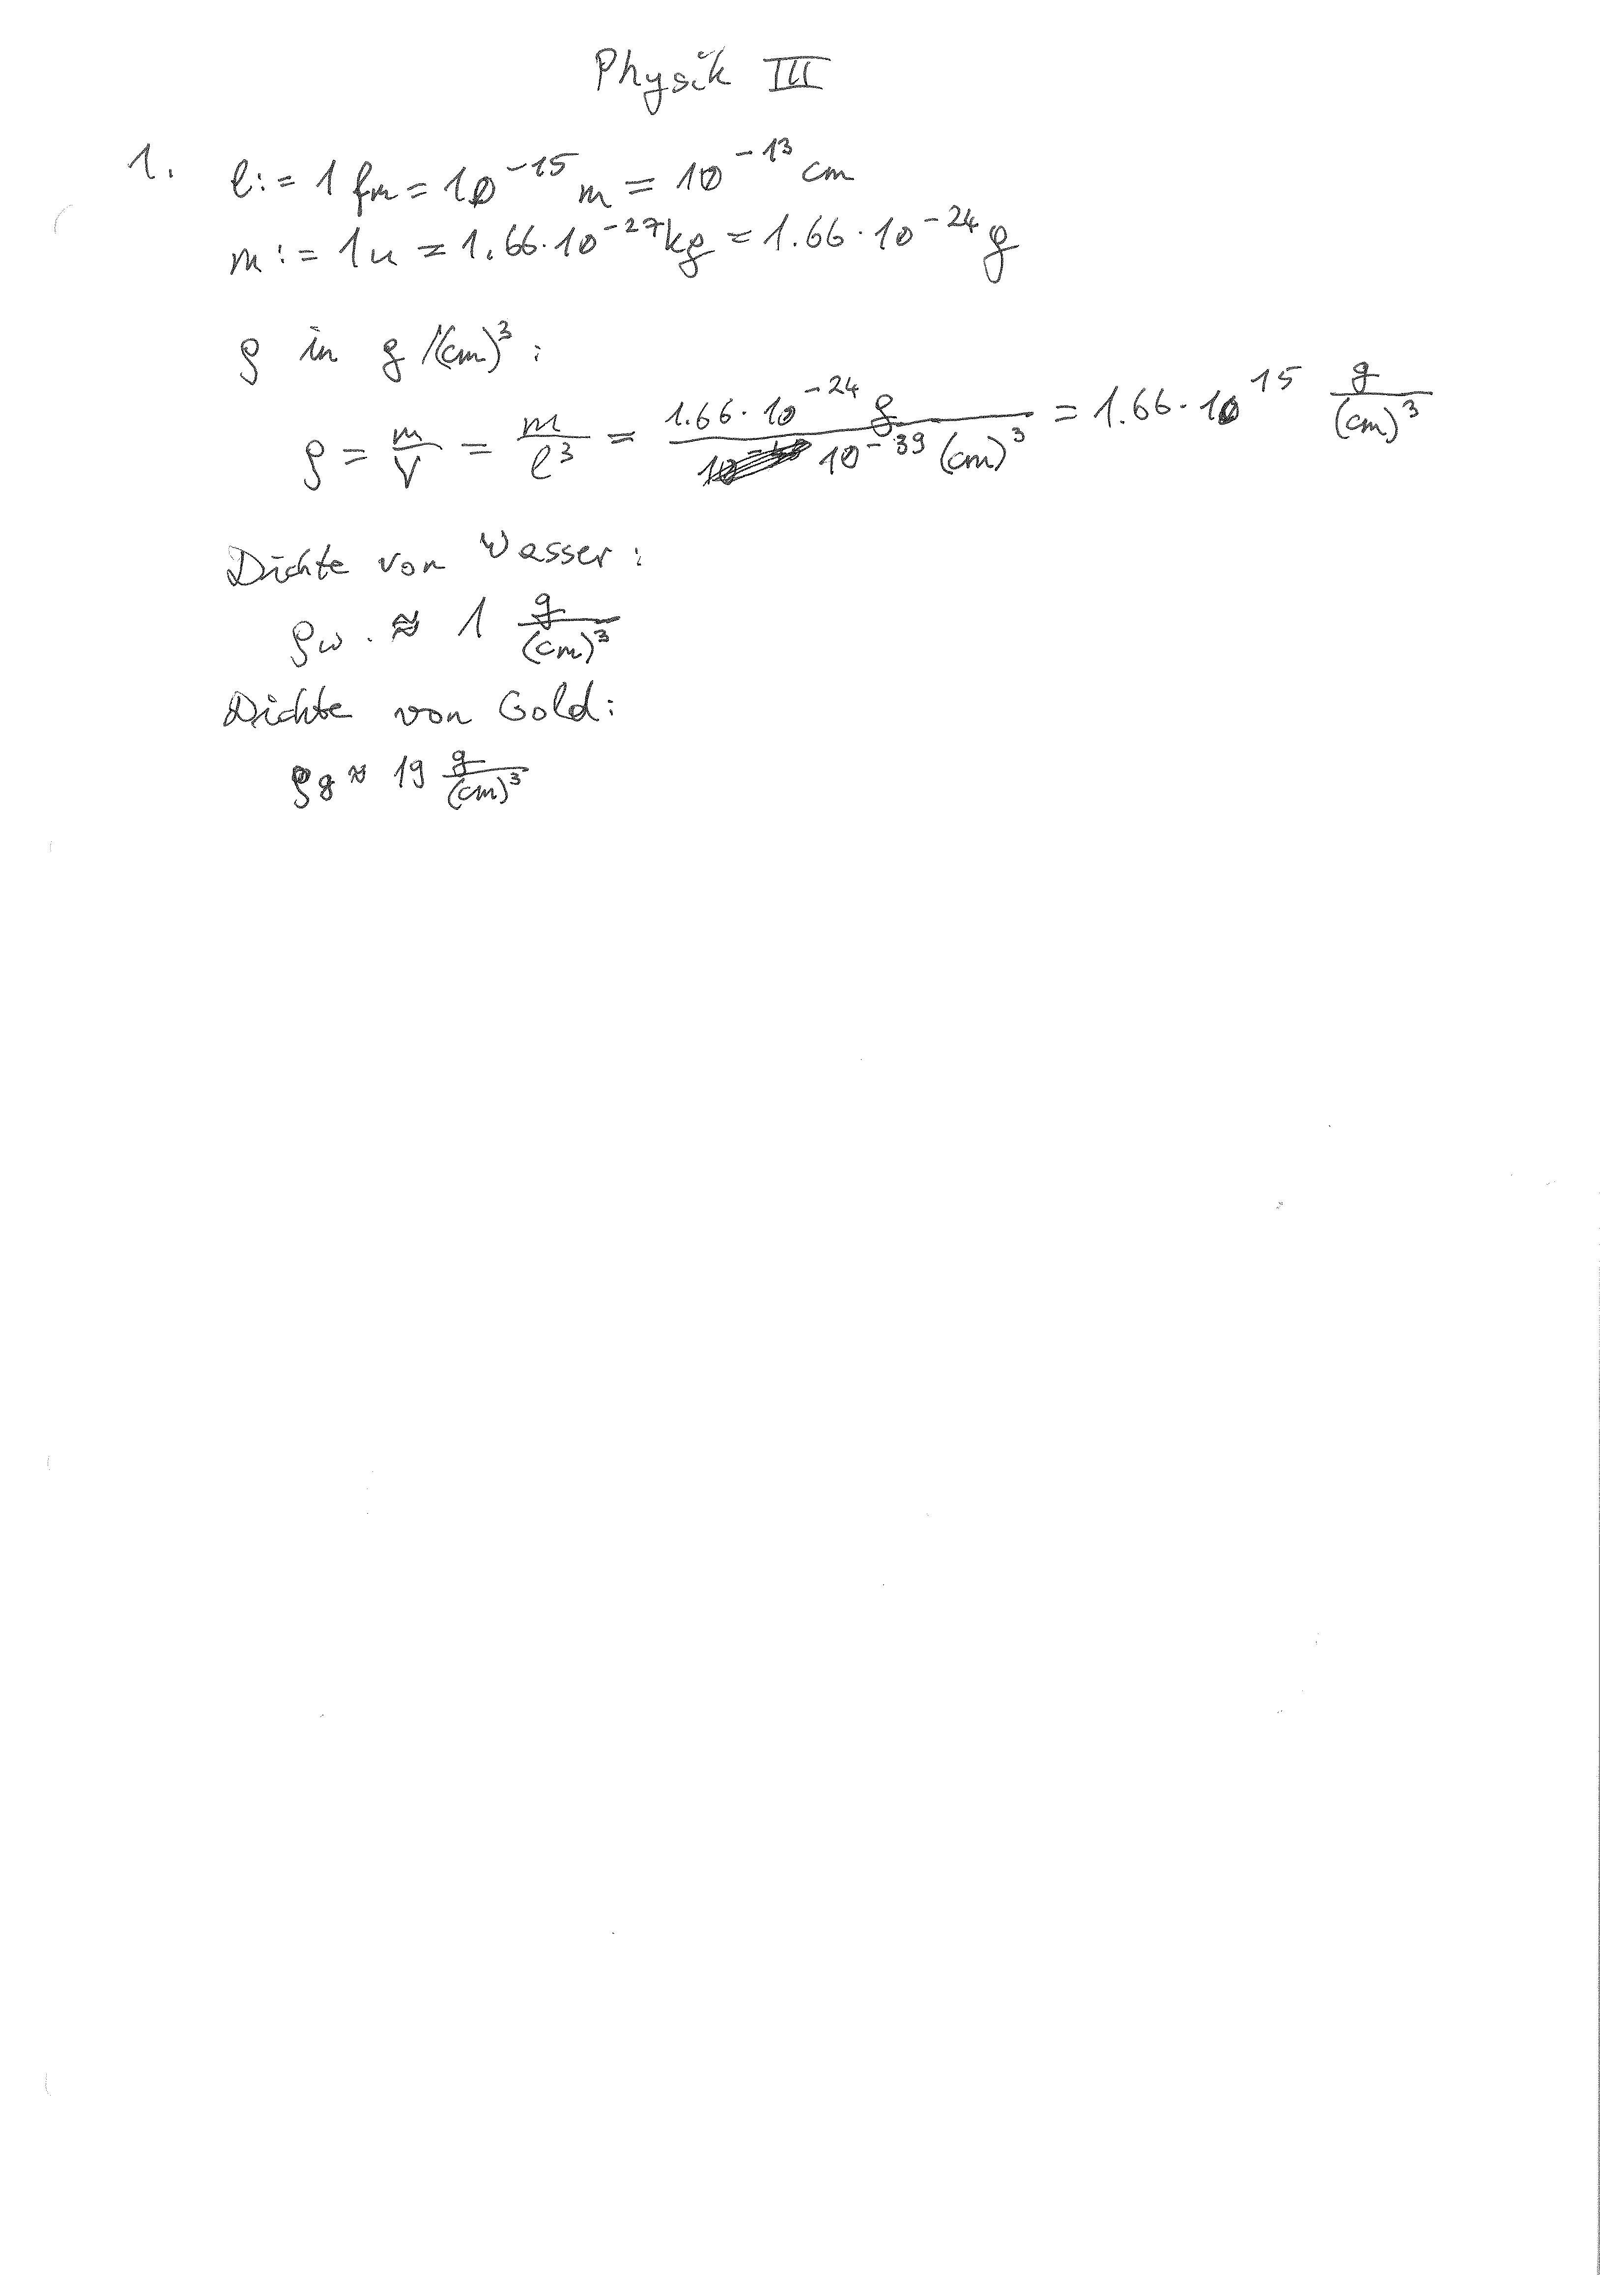 Physik III
1. l := 1 fm = 10^-15 m = 10^-13 cm
m := 1u = 1.66·10^-27 kg = 1.66·10^-24 g
ρ in g/(cm)^3 :
ρ = m/V = m/l^3 = 1.66·10^-24 g / 10^-39 (cm)^3 = 1.66·10^15 g/(cm)^3
Dichte von Wasser:
ρw. ≈ 1 g/(cm)^3
Dichte von Gold:
ρg ≈ 19 g/(cm)^3